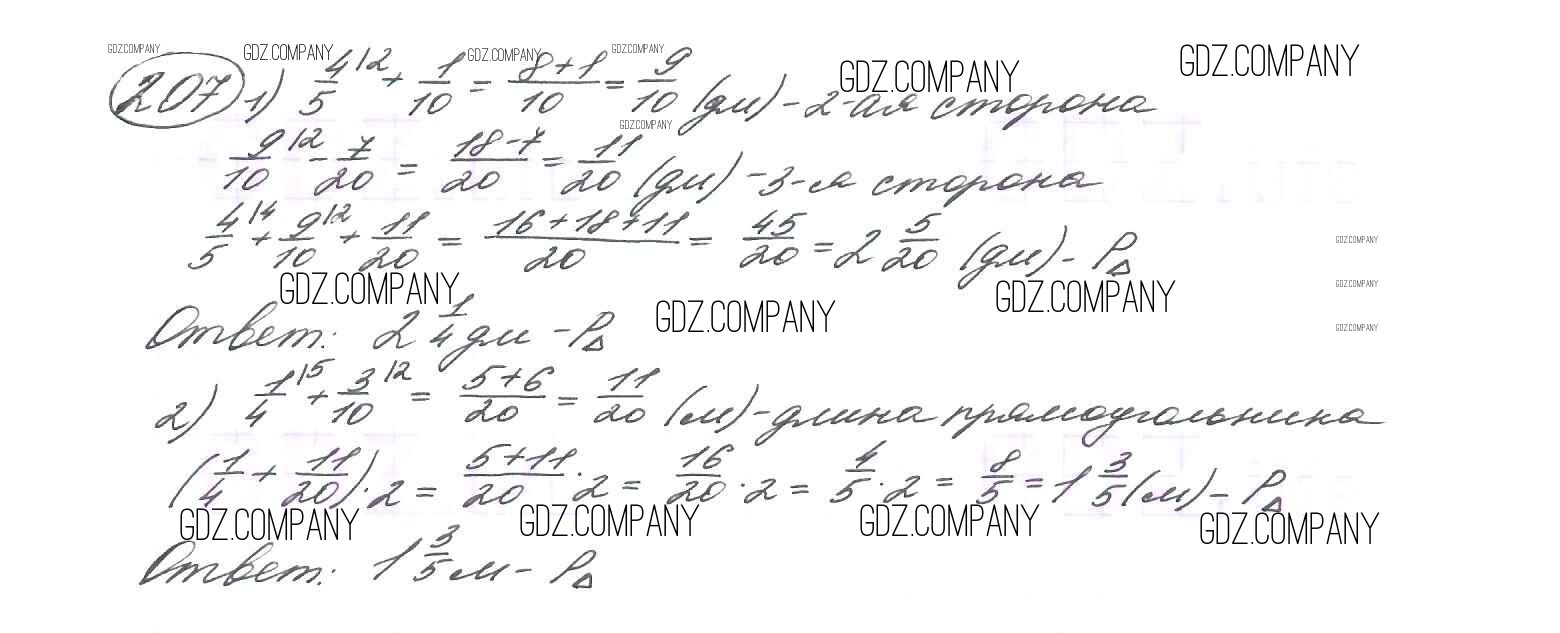 GDZ.COMPANY GDZ.COMPANY GDZ.COMPANY GDZ.COMPANY GDZ.COMPANY GDZ.COMPANY
207 1) 4/5 |2 + 1/10 = (8+1)/10 = 9/10 (дм) - 2-ая сторона
GDZ.COMPANY
9/10 |2 - 7/20 = (18-7)/20 = 11/20 (дм) - 3-я сторона
4/5 |4 + 9/10 |2 + 11/20 = (16+18+11)/20 = 45/20 = 2 5/20 (дм) - P△
GDZ.COMPANY
GDZ.COMPANY
GDZ.COMPANY GDZ.COMPANY GDZ.COMPANY
GDZ.COMPANY
Ответ: 2 1/4 дм - P△
2) 1/4 |5 + 3/10 |2 = (5+6)/20 = 11/20 (м) - длина прямоугольника
(1/4 + 11/20) · 2 = (5+11)/20 · 2 = 16/20 · 2 = 4/5 · 2 = 8/5 = 1 3/5 (м) - P△
GDZ.COMPANY GDZ.COMPANY GDZ.COMPANY GDZ.COMPANY
Ответ: 1 3/5 м - P△